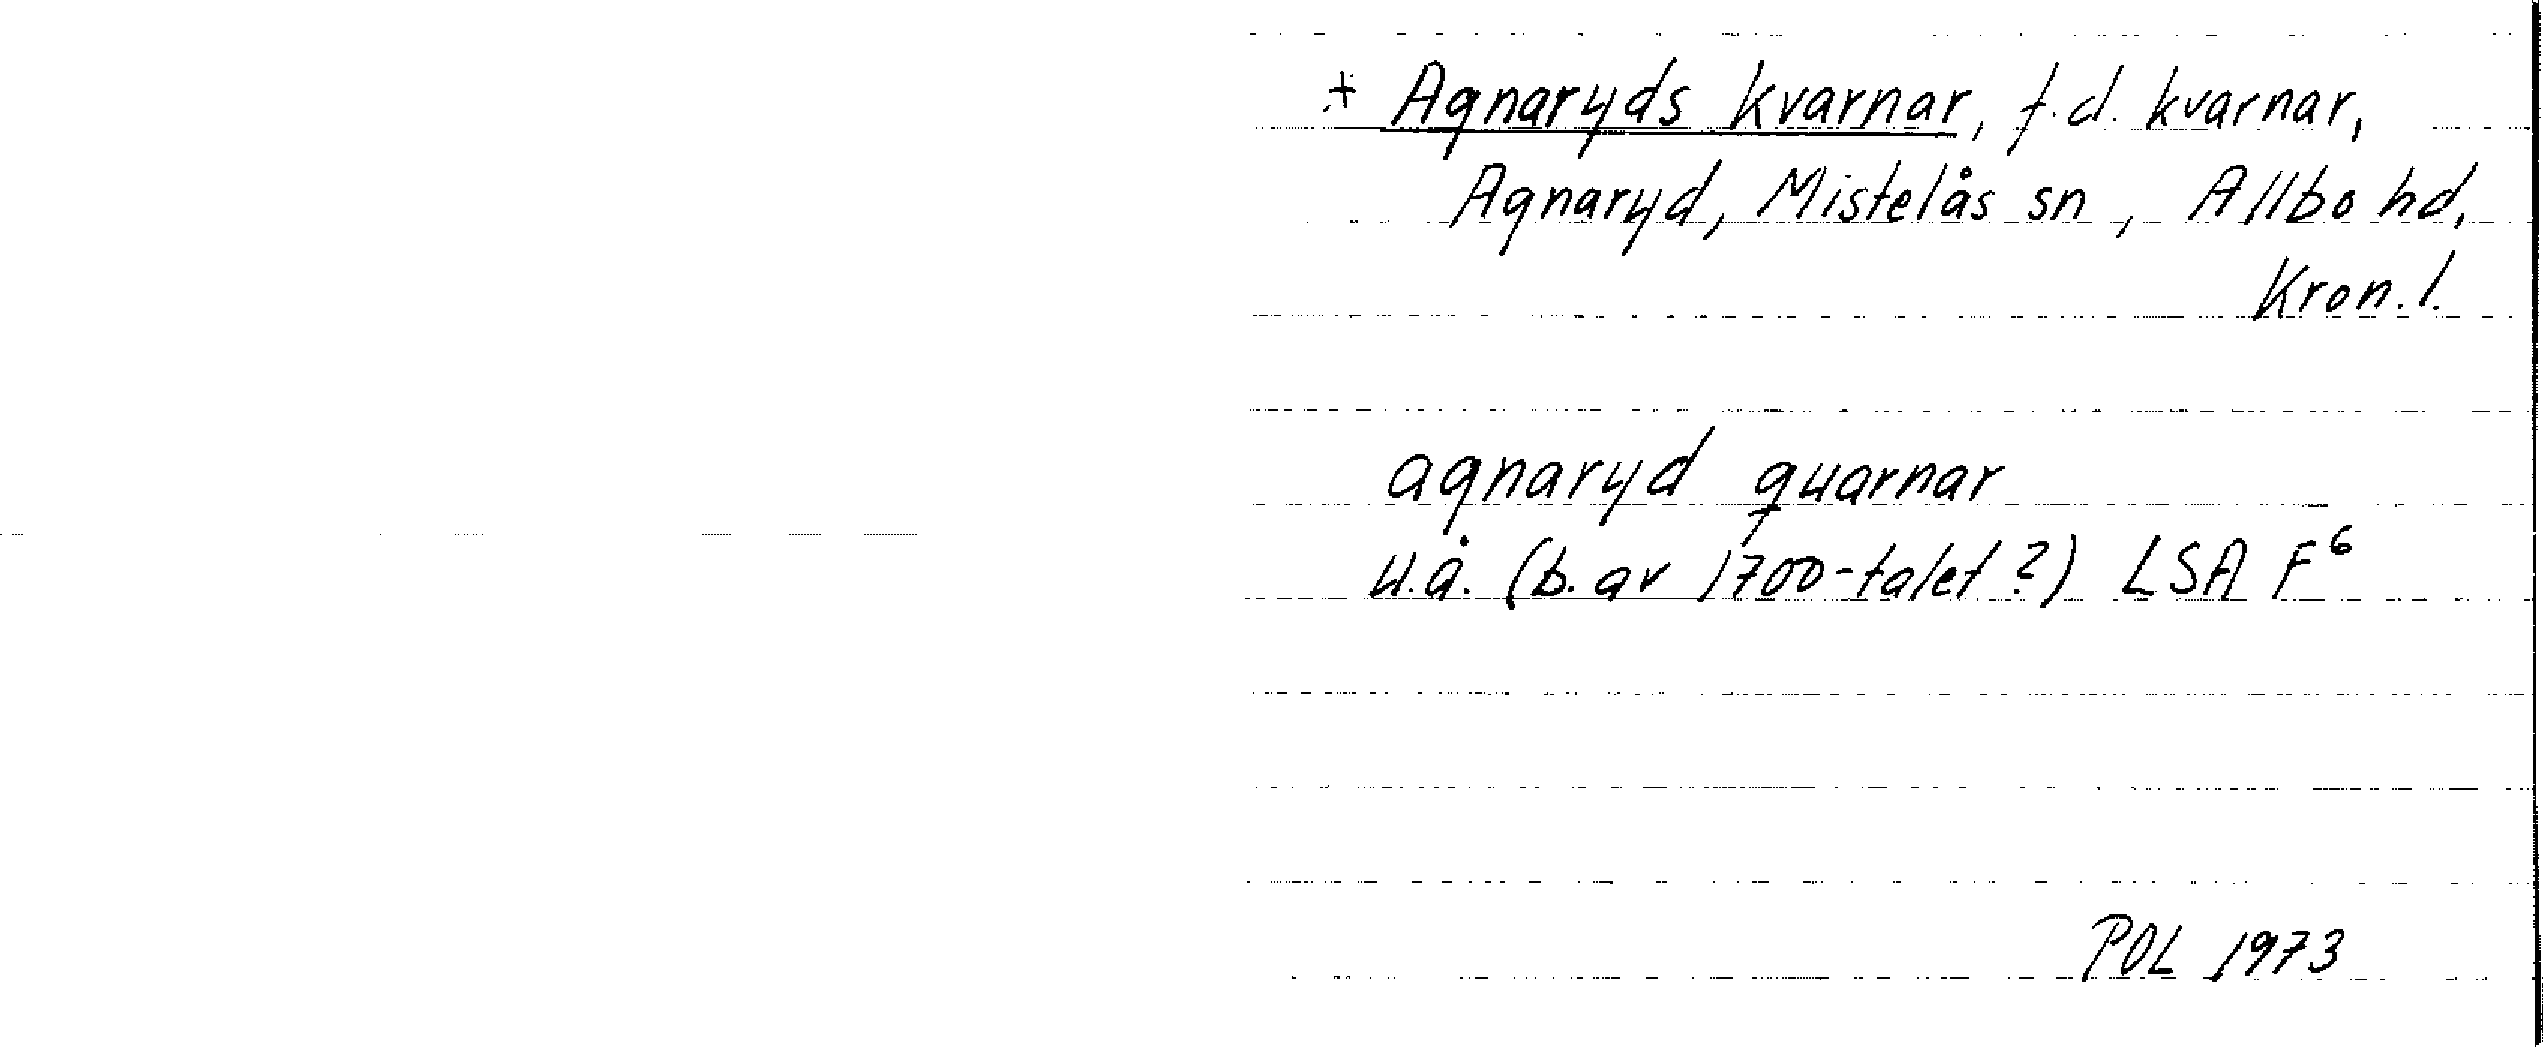 + Agnaryds kvarnar, f.d. kvarnar,
Agnaryd, Mistelås sn, Allbo hd,
Kron. l.
agnaryd quarnar
u.å. (b. av 1700-talet?) LSA F⁶
POL 1973